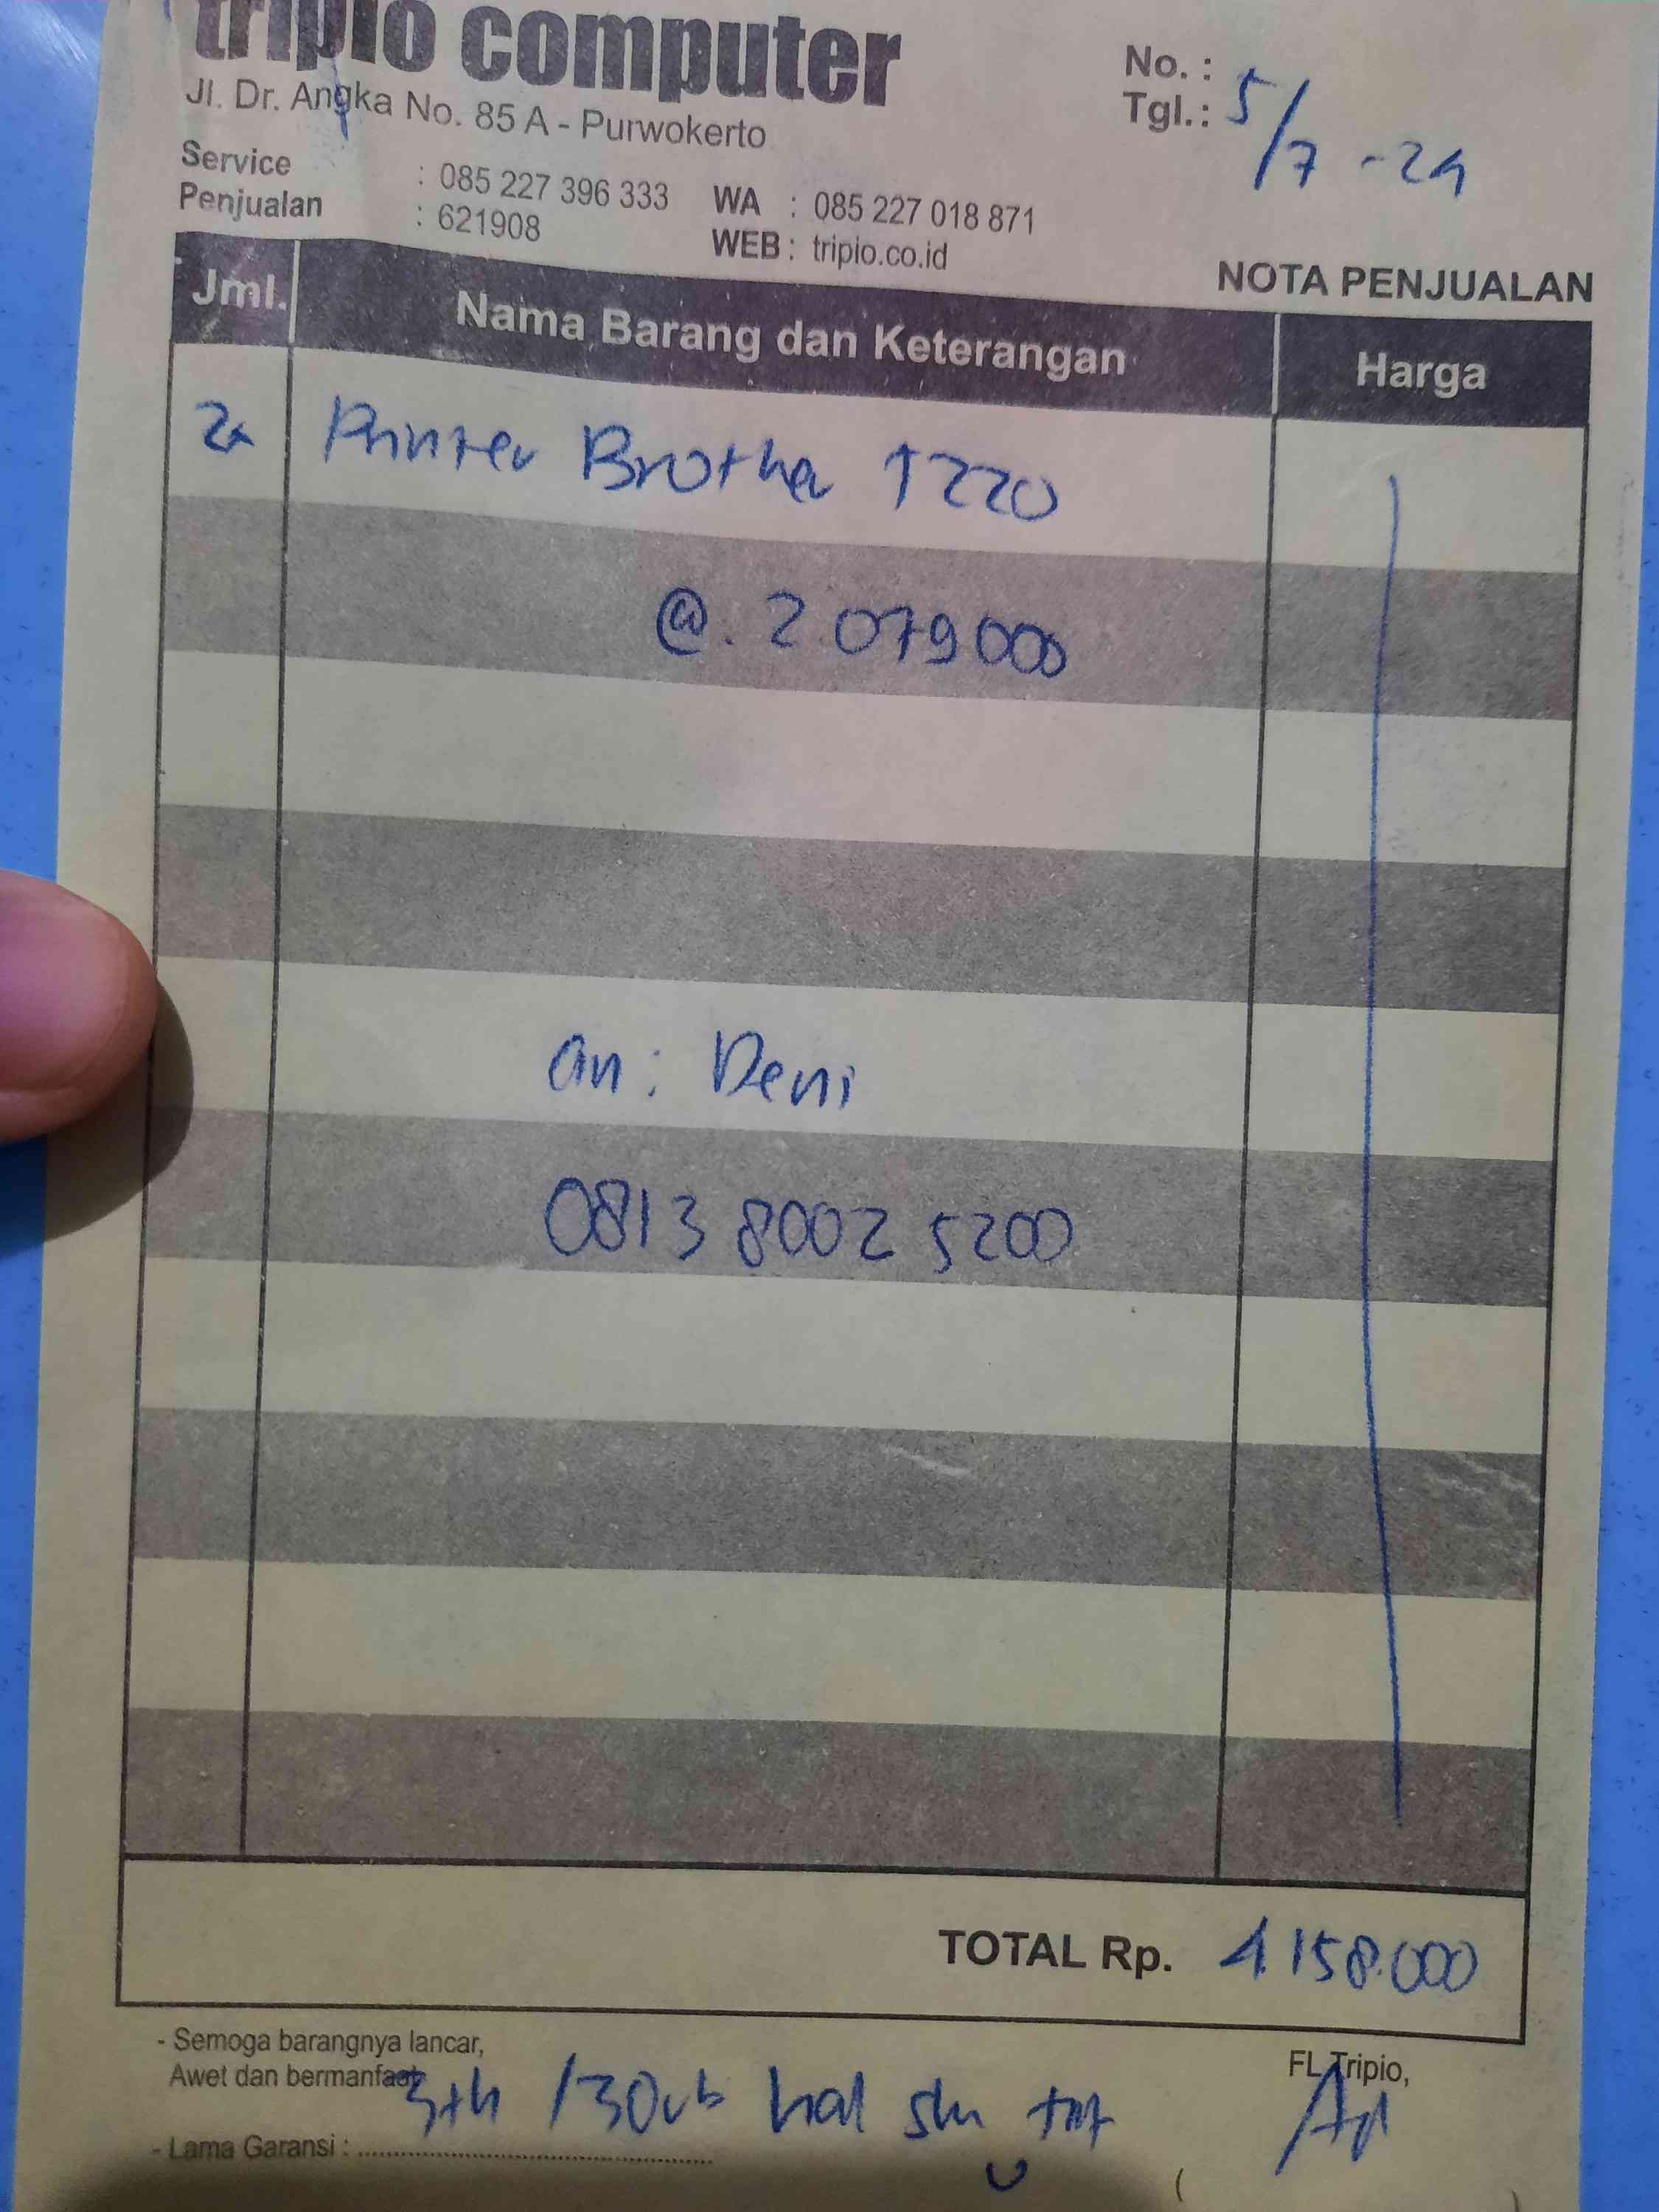 tripio computer
Jl. Dr. Angka No. 85 A - Purwokerto
Service : 085 227 396 333 WA : 085 227 018 871
Penjualan : 621908 WEB : tripio.co.id
No. :
Tgl. : 5/7 - 24
NOTA PENJUALAN
Jml. Nama Barang dan Keterangan Harga
2x Printer Brother T220
@. 2 079 000
an : Deni
0813 8002 5200
TOTAL Rp. 4.158.000
- Semoga barangnya lancar,
Awet dan bermanfaat
FL Tripio,
3th / 30rb hal
- Lama Garansi :